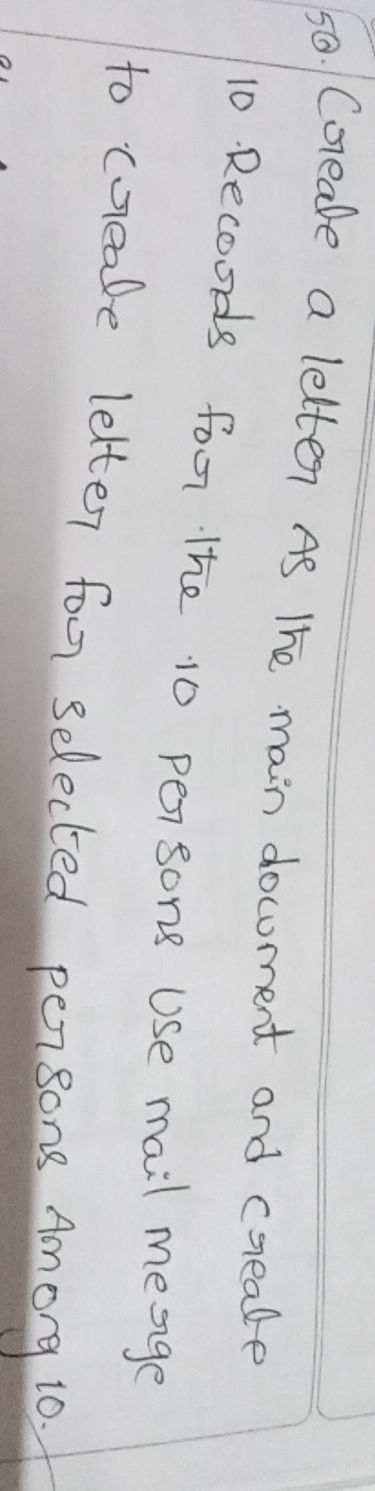 5Q. Create a letter As the main document and create
10 Records for the 10 persons Use mail merge
to create letter for selected persons Among 10.